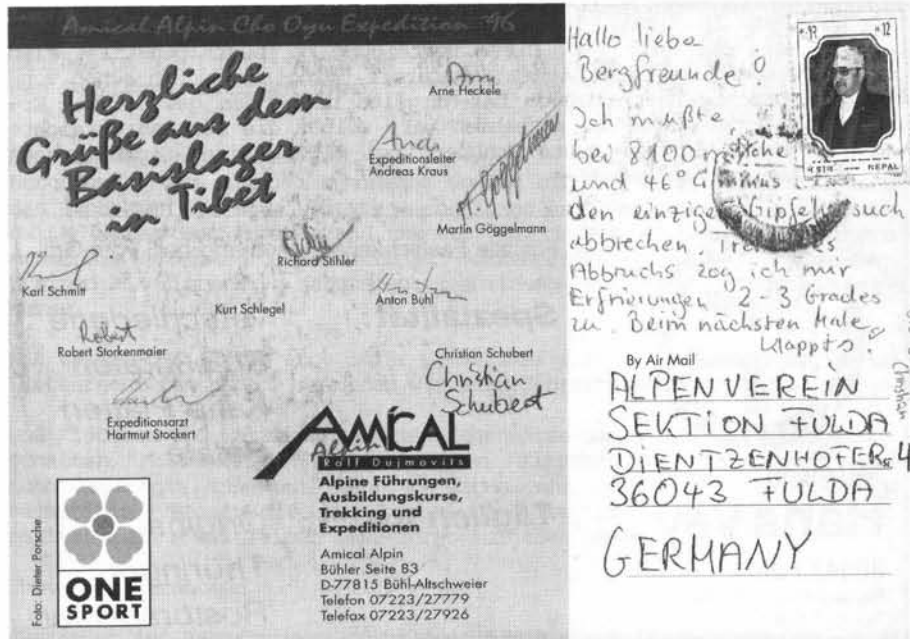 Amical Alpin Cho Oyu Expedition '96
Herzliche
Grüße aus dem
Basislager
in Tibet
Arne Heckele
Expeditionsleiter
Andreas Kraus
Martin Göggelmann
Richard Stihler
Karl Schmitt
Kurt Schlegel
Anton Buhl
Robert
Robert Storkenmaier
Christian Schubert
Christian
Schubert
Expeditionsarzt
Hartmut Stockert
AMICAL
Alpin
Ralf Dujmovits
Alpine Führungen,
Ausbildungskurse,
Trekking und
Expeditionen
Amical Alpin
Bühler Seite 83
D-77815 Bühl-Altschweier
Telefon 07223/27779
Telefax 07223/27926
Foto: Dieter Porsche
ONE
SPORT
Hallo liebe
Bergfreunde!
Ich mußte,
bei 8100 m
und 46° minus
den einzigen Gipfelversuch
abbrechen. Trotz des
Abbruchs zog ich mir
Erfrierungen 2-3 Grades
zu. Beim nächsten Male
klappts!
Christian
NEPAL
By Air Mail
ALPENVEREIN
SEKTION FULDA
DIENTZENHOFERSt. 4
36043 FULDA
GERMANY